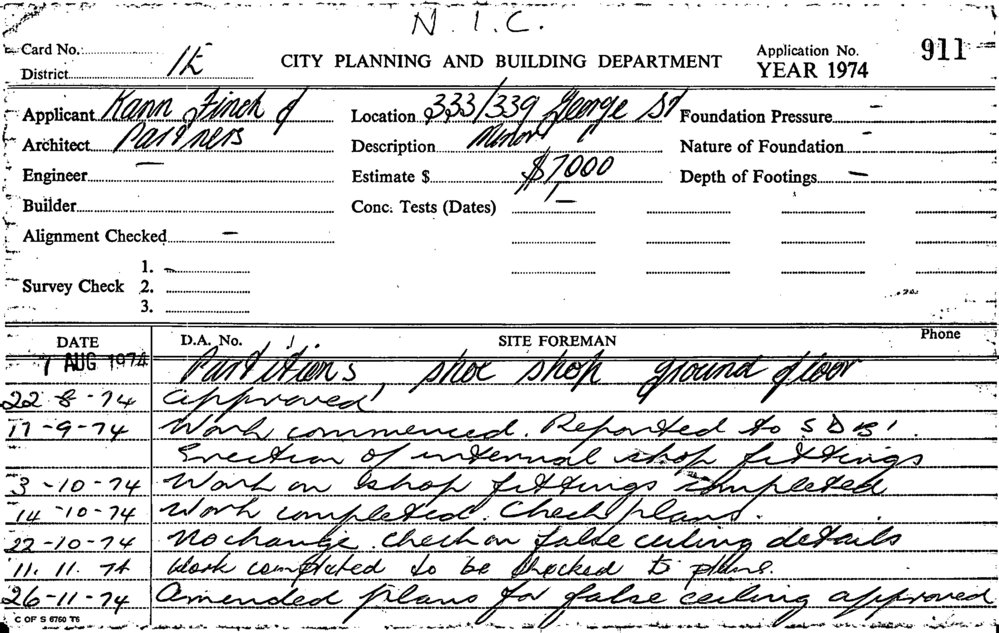 N.I.C.
Card No.
District 1E
CITY PLANNING AND BUILDING DEPARTMENT
Application No. 911
YEAR 1974
Applicant Kann Finch &
Architect Partners
Engineer —
Builder
Alignment Checked —
Survey Check 1.
2.
3.
Location 333/339 George St
Description Minor
Estimate $ $7,000
Conc. Tests (Dates) —
Foundation Pressure —
Nature of Foundation —
Depth of Footings —
DATE D.A. No. SITE FOREMAN Phone
7 AUG 1974 Partitions, shoe shop ground floor
22-8-74 approved
17-9-74 Work commenced. Reported to S D B I.
Erection of internal shop fittings
3-10-74 Work on shop fittings completed
14-10-74 Work completed. Check plans.
22-10-74 No change. Check on false ceiling details
11.11.74 Work completed to be checked to plans.
26-11-74 Amended plans for false ceiling approved
C OF S 6760 T6